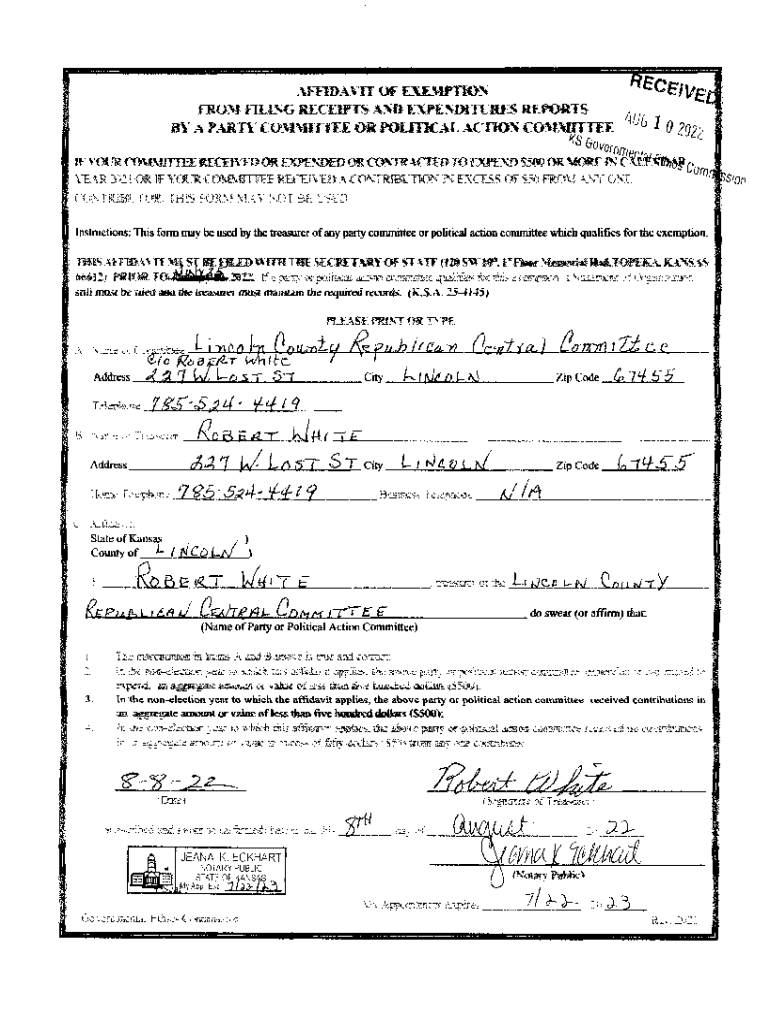 AFFIDAVIT OF EXEMPTION
FROM FILING RECEIPTS AND EXPENDITURES REPORTS
BY A PARTY COMMITTEE OR POLITICAL ACTION COMMITTEE
RECEIVED
AUG 10 2022
KS Governmental Ethics Commission
IF YOUR COMMITTEE RECEIVED OR EXPENDED OR CONTRACTED TO EXPEND $500 OR MORE IN CALENDAR
YEAR 2021 OR IF YOUR COMMITTEE RECEIVED A CONTRIBUTION IN EXCESS OF $50 FROM ANY ONE
CONTRIBUTOR, THIS FORM MAY NOT BE USED
Instructions: This form may be used by the treasurer of any party committee or political action committee which qualifies for the exemption.
THIS AFFIDAVIT MUST BE FILED WITH THE SECRETARY OF STATE (120 SW 10th, 1st Floor Memorial Hall, TOPEKA, KANSAS
66612) PRIOR TO 2022. If a party or political action committee qualifies for this exemption, a Statement of Organization
still must be filed and the treasurer must maintain the required records. (K.S.A. 25-4145)
PLEASE PRINT OR TYPE
A. Name of Committee Lincoln County Republican Central Committee
C/O ROBERT White
Address 227 W LOST ST City LINCOLN Zip Code 67455
Telephone 785-524-4419
B. Name of Treasurer ROBERT WHITE
Address 227 W. LOST ST City LINCOLN Zip Code 67455
Home Telephone 785-524-4419 Business Telephone N/A
C. Affidavit
State of Kansas )
County of LINCOLN )
I, ROBERT WHITE, treasurer of the LINCOLN COUNTY
REPUBLICAN CENTRAL COMMITTEE do swear (or affirm) that:
(Name of Party or Political Action Committee)
1. The information in Items A and B above is true and correct.
2. In the non-election year to which this affidavit applies, the above party or political action committee expended or contracted to
expend, an aggregate amount or value of less than five hundred dollars ($500);
3. In the non-election year to which the affidavit applies, the above party or political action committee received contributions in
an aggregate amount or value of less than five hundred dollars ($500);
4. In the non-election year to which this affidavit applies, the above party or political action committee received no contributions
in an aggregate amount or value in excess of fifty dollars ($50) from any one contributor.
8-8-22 Robert White
(Date) (Signature of Treasurer)
Subscribed and sworn to (affirmed) before me this 8TH day of August 20 22
Jeana K Eckhart
(Notary Public)
JEANA K. ECKHART
NOTARY PUBLIC
STATE OF KANSAS
My App. Exp. 7/22/23
My Appointment Expires 7/22 20 23
Governmental Ethics Commission Rev. 2021